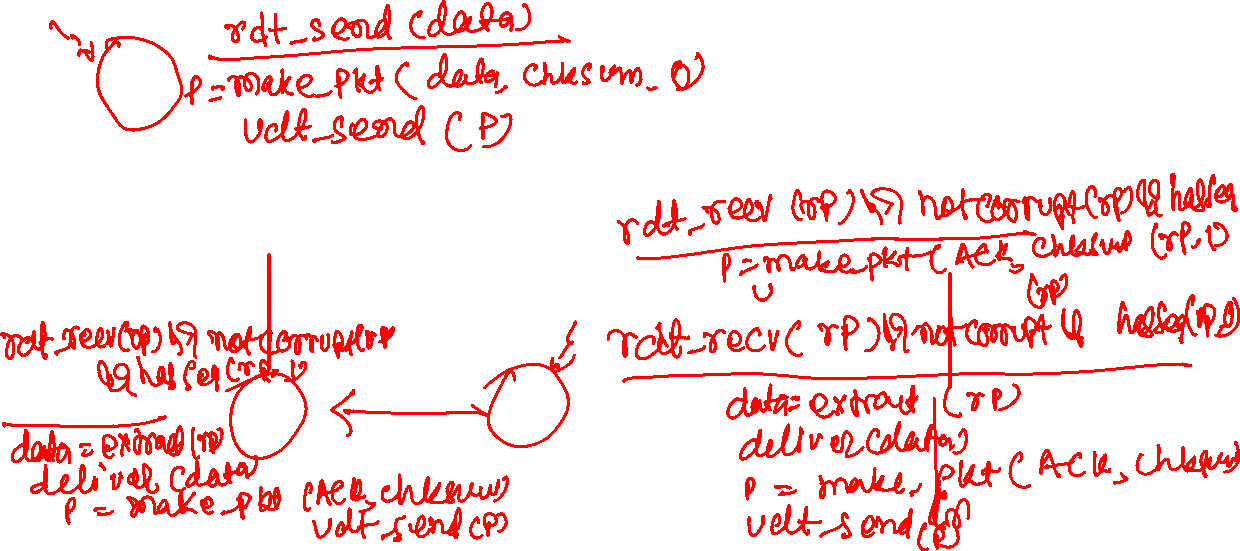 rdt_send (data)
P = make_pkt ( data, chksum, 0)
udt_send (P)
rdt_recv (rP) && notcorrupt (rP) && hasseq
P = make_pkt (ACK, chksum (rP, 1)
(rP)
rdt_recv ( rP) && notcorrupt && hasseq(rP,0)
data = extract (rP)
deliver (data)
P = make_pkt ( ACK, chksum)
udt_send (P)
rdt_recv(rp) && notcorrupt(rP
&& hasseq (rP, 1)
data = extract (rp)
deliver (data)
P = make_pkt (ACK, chksum)
udt_send (P)